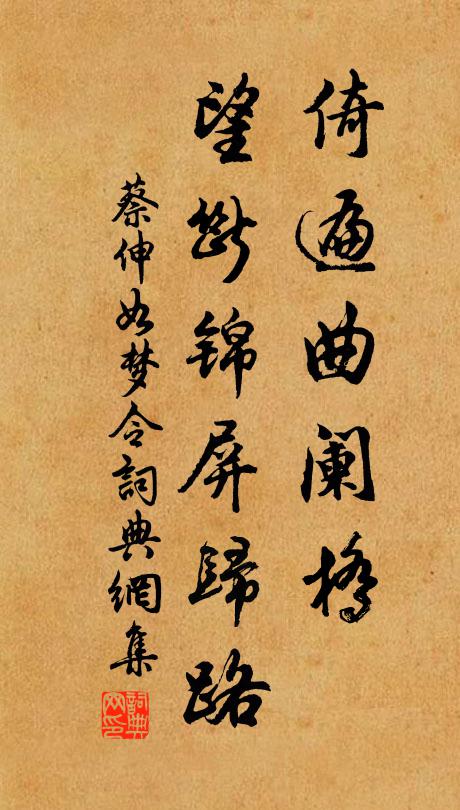 倚遍曲阑橋
望断锦屏歸路
蔡伸如梦令詞典網集
詞典网印